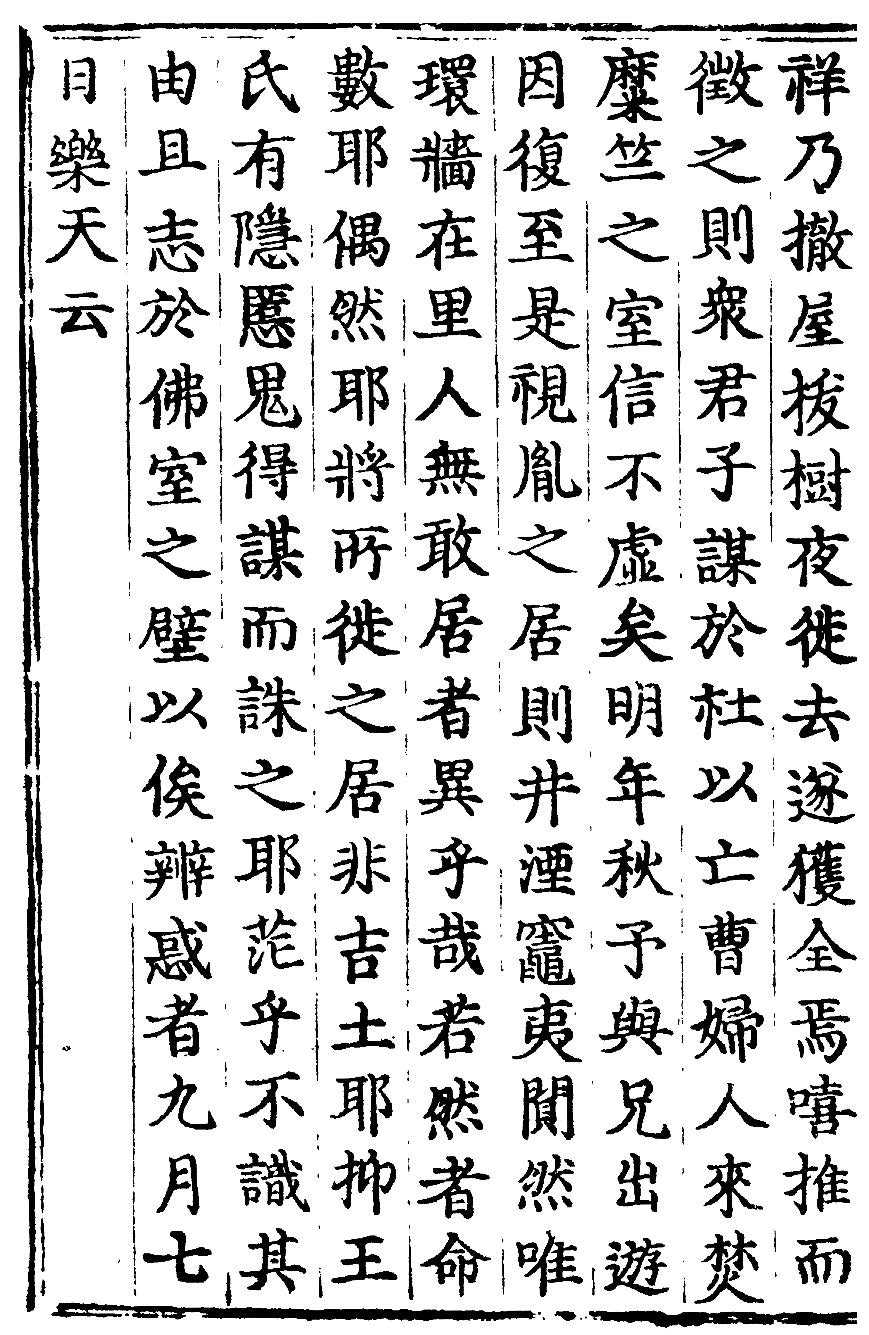 祥乃撤屋拔樹夜徙去遂獲全焉嘻推而
徵之則衆君子謀於社以亡曹婦人來焚
糜竺之室信不虛矣明年秋予與兄出遊
因復至是視胤之居則井湮竈夷闃然唯
環牆在里人無敢居者異乎哉若然者命
數耶偶然耶將所徙之居非吉土耶抑王
氏有隱慝鬼得謀而誅之耶茫乎不識其
由且志於佛室之壁以俟辨惑者九月七
日樂天云